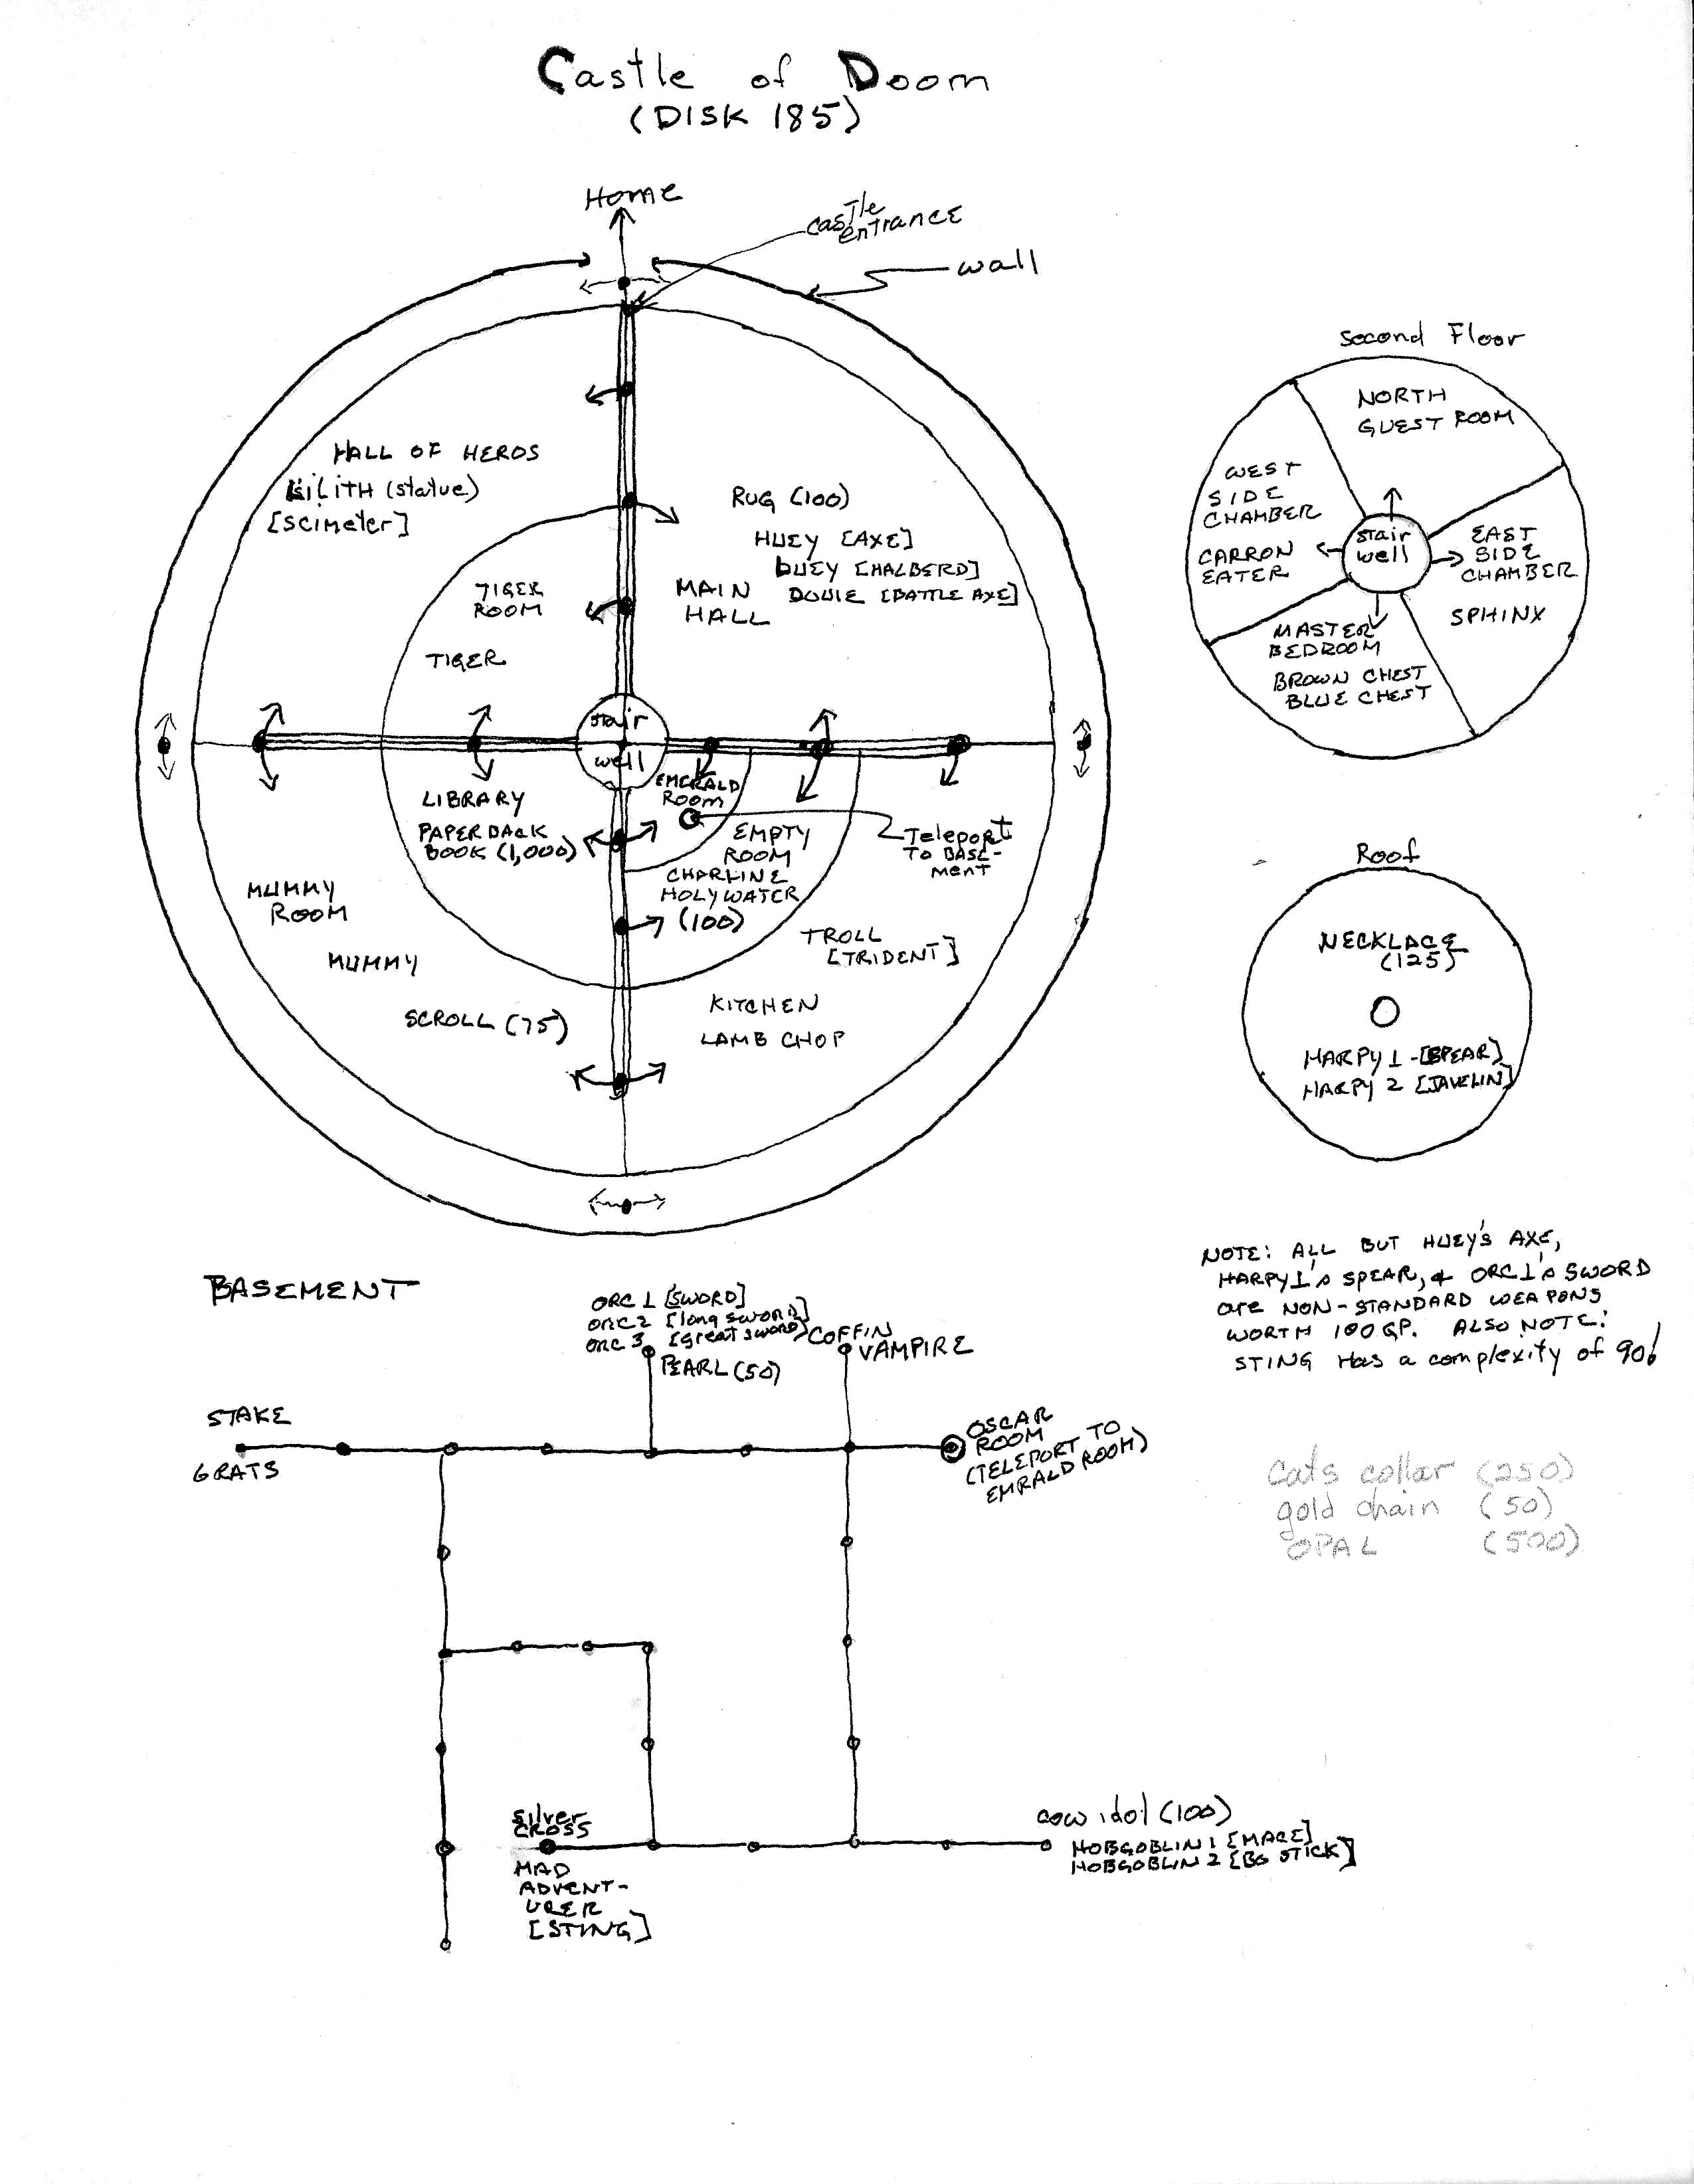 Castle of Doom
(DISK 185)
Home
castle
entrance
wall
HALL OF HEROS
LILITH (statue)
[SCIMETER]
RUG (100)
HUEY [AXE]
DUEY [HALBERD]
LOUIE [BATTLE AXE]
MAIN
HALL
TIGER
ROOM
TIGER
stair
well
LIBRARY
PAPERBACK
BOOK (1,000)
EMERALD
ROOM
EMPTY
ROOM
CHARLINE
HOLY WATER
(100)
Teleport
TO BASE-
MENT
MUMMY
ROOM
MUMMY
SCROLL (75)
TROLL
[TRIDENT]
KITCHEN
LAMB CHOP
Second Floor
NORTH
GUEST ROOM
WEST
SIDE
CHAMBER
CARRON
EATER
stair
well
EAST
SIDE
CHAMBER
SPHINX
MASTER
BEDROOM
BROWN CHEST
BLUE CHEST
Roof
NECKLACE
(125)
HARPY 1 - [SPEAR]
HARPY 2 [JAVELIN]
NOTE: ALL BUT HUEY'S AXE,
HARPY 1'S SPEAR, & ORC 1'S SWORD
are NON-STANDARD WEAPONS
WORTH 100 GP. ALSO NOTE:
STING Has a complexity of 90!
BASEMENT
ORC 1 [SWORD]
ORC 2 [long sword]
ORC 3 [great sword]
PEARL (50)
COFFIN
VAMPIRE
STAKE
6 RATS
OSCAR
ROOM
(TELEPORT TO
EMRALD ROOM)
Cats collar (250)
gold chain (50)
OPAL (500)
Silver
CROSS
MAD
ADVENT-
URER
[STING]
COW idol (100)
HOBGOBLIN 1 [MACE]
HOBGOBLIN 2 [BG STICK]